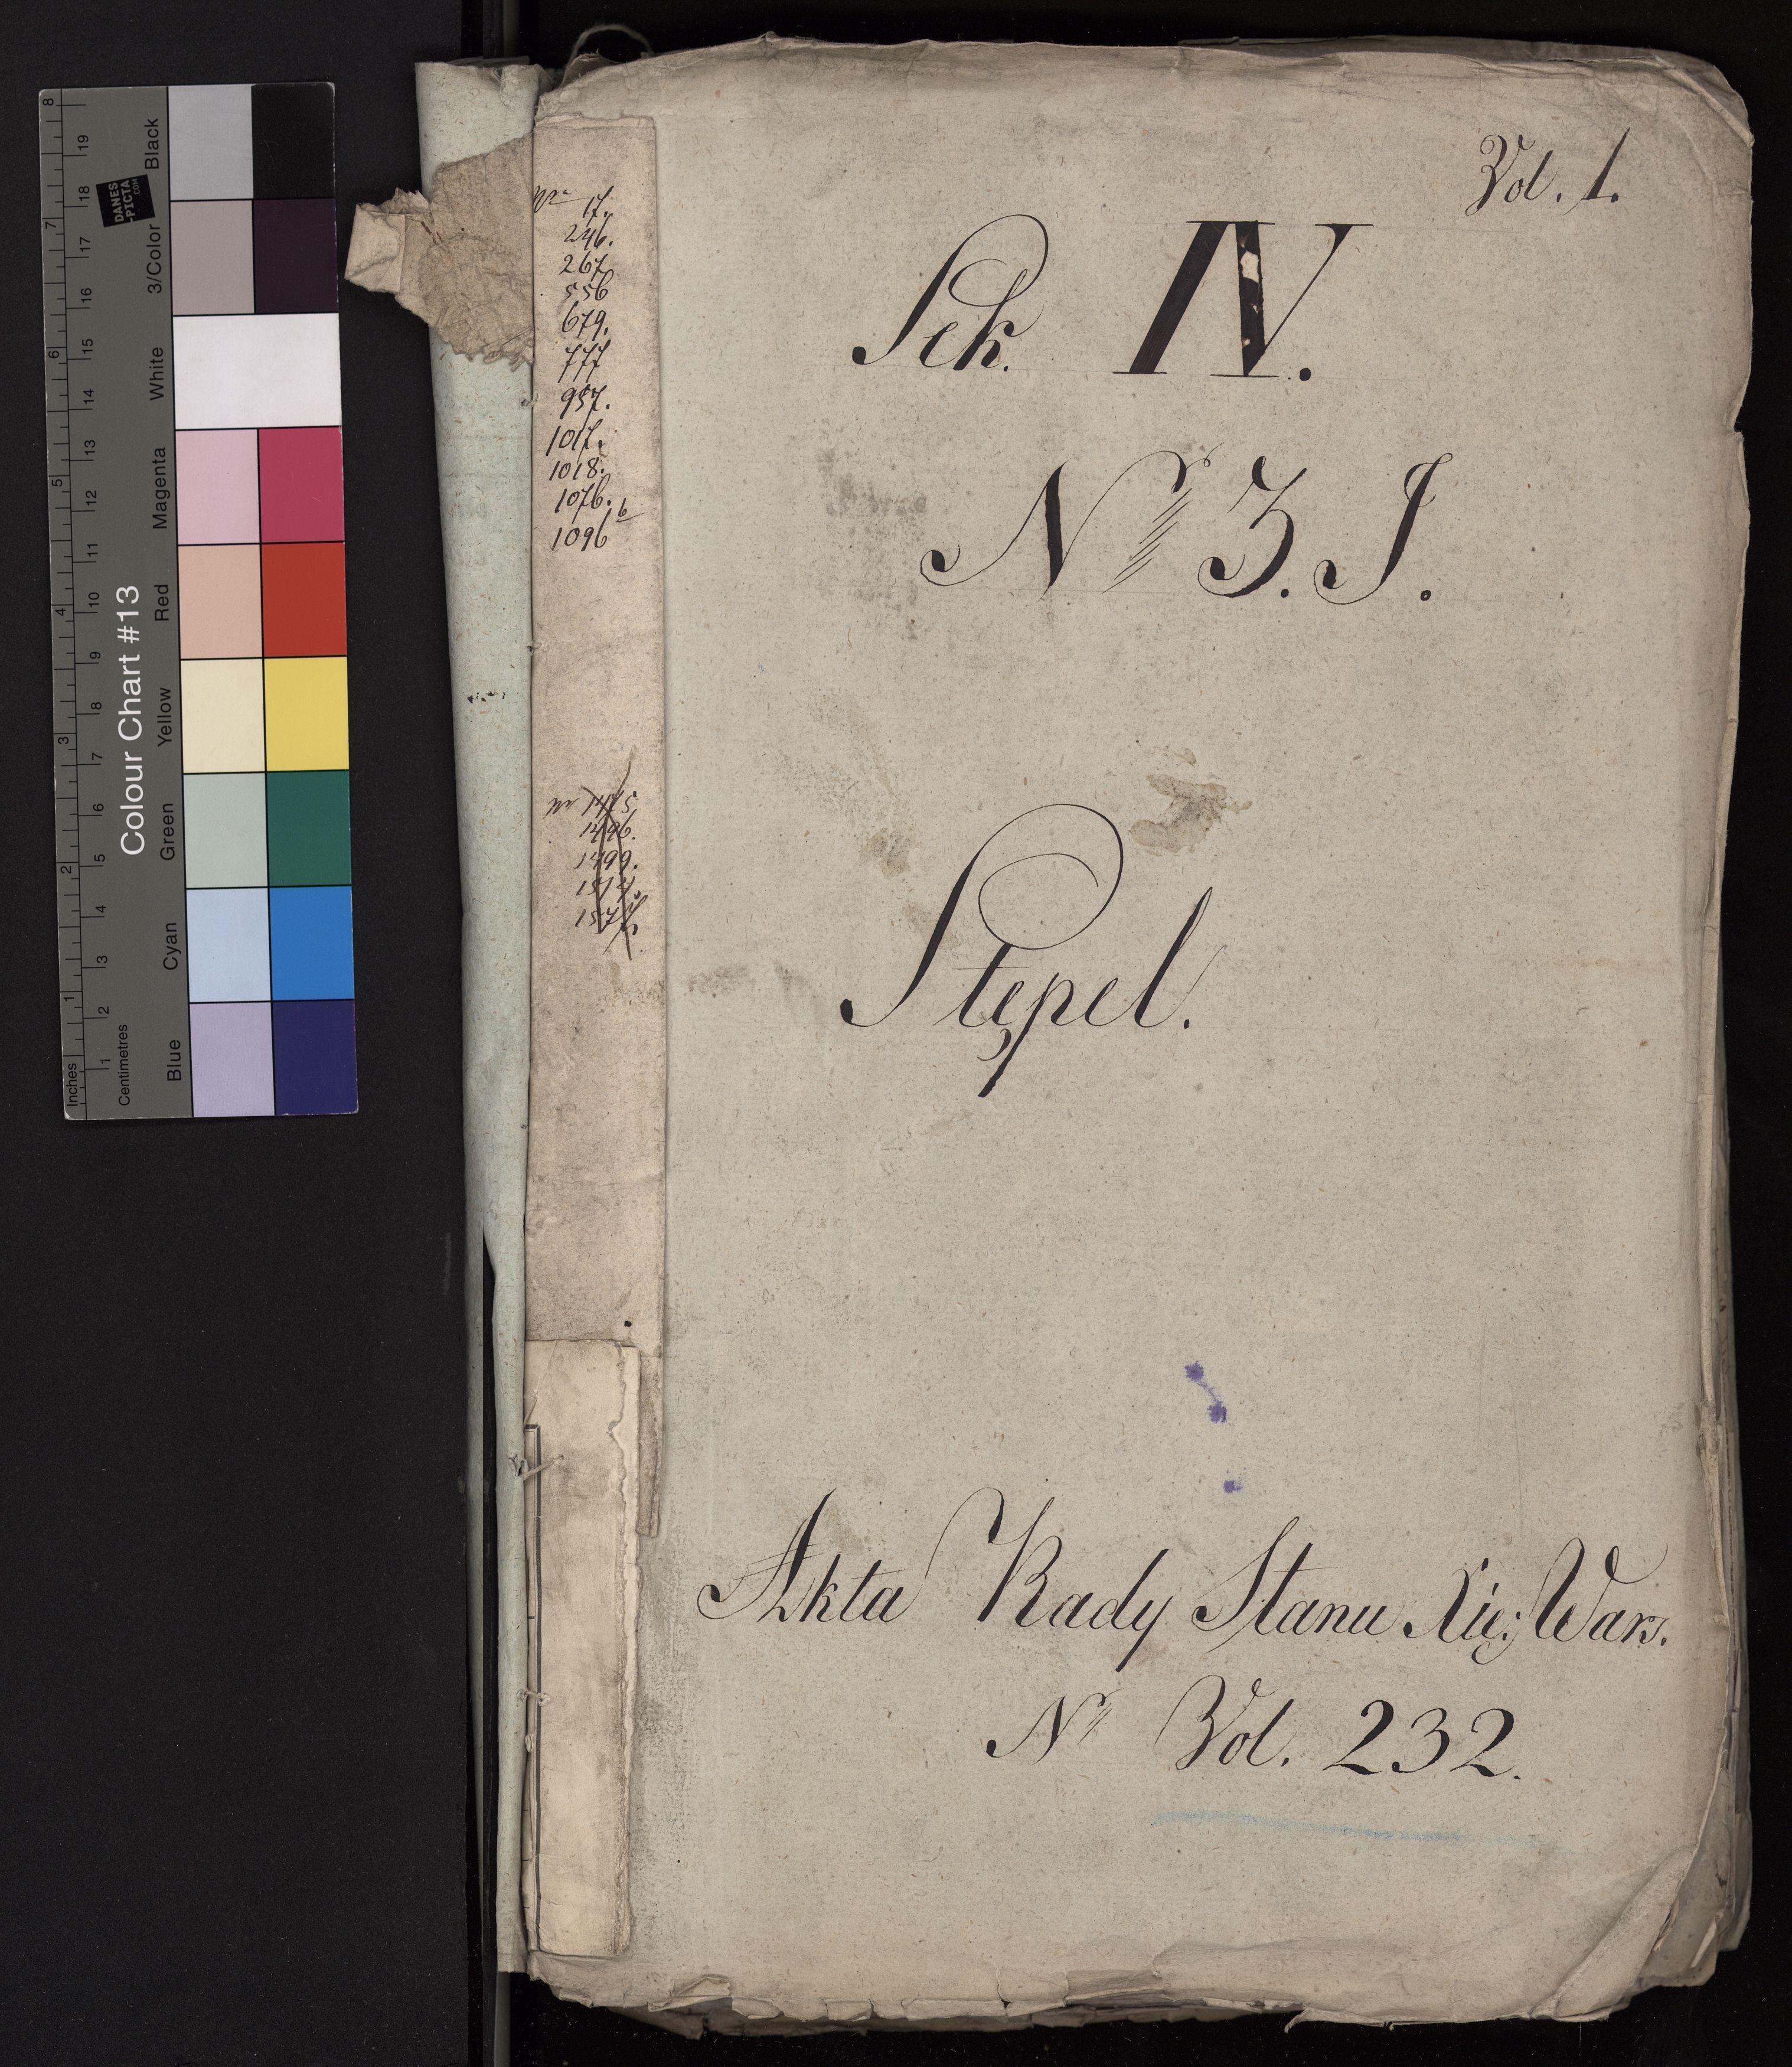 Vol. 1.
Sek. IV.
Nr 3. J.
Stępel.
Akta Rady Stanu Xię: Wars.
Nr Vol. 232.
Nro 17.
246.
267
556
679.
777
957.
1017.
1018.
1076.
1096 b
1496.
1499.
Colour Chart #13
Inches
Centimetres
Blue
Cyan
Green
Yellow
Red
Magenta
White
3/Color
Black
DANES
-PICTA
.COM
1 2 3 4 5 6 7 8
1 2 3 4 5 6 7 8 9 10 11 12 13 14 15 16 17 18 19